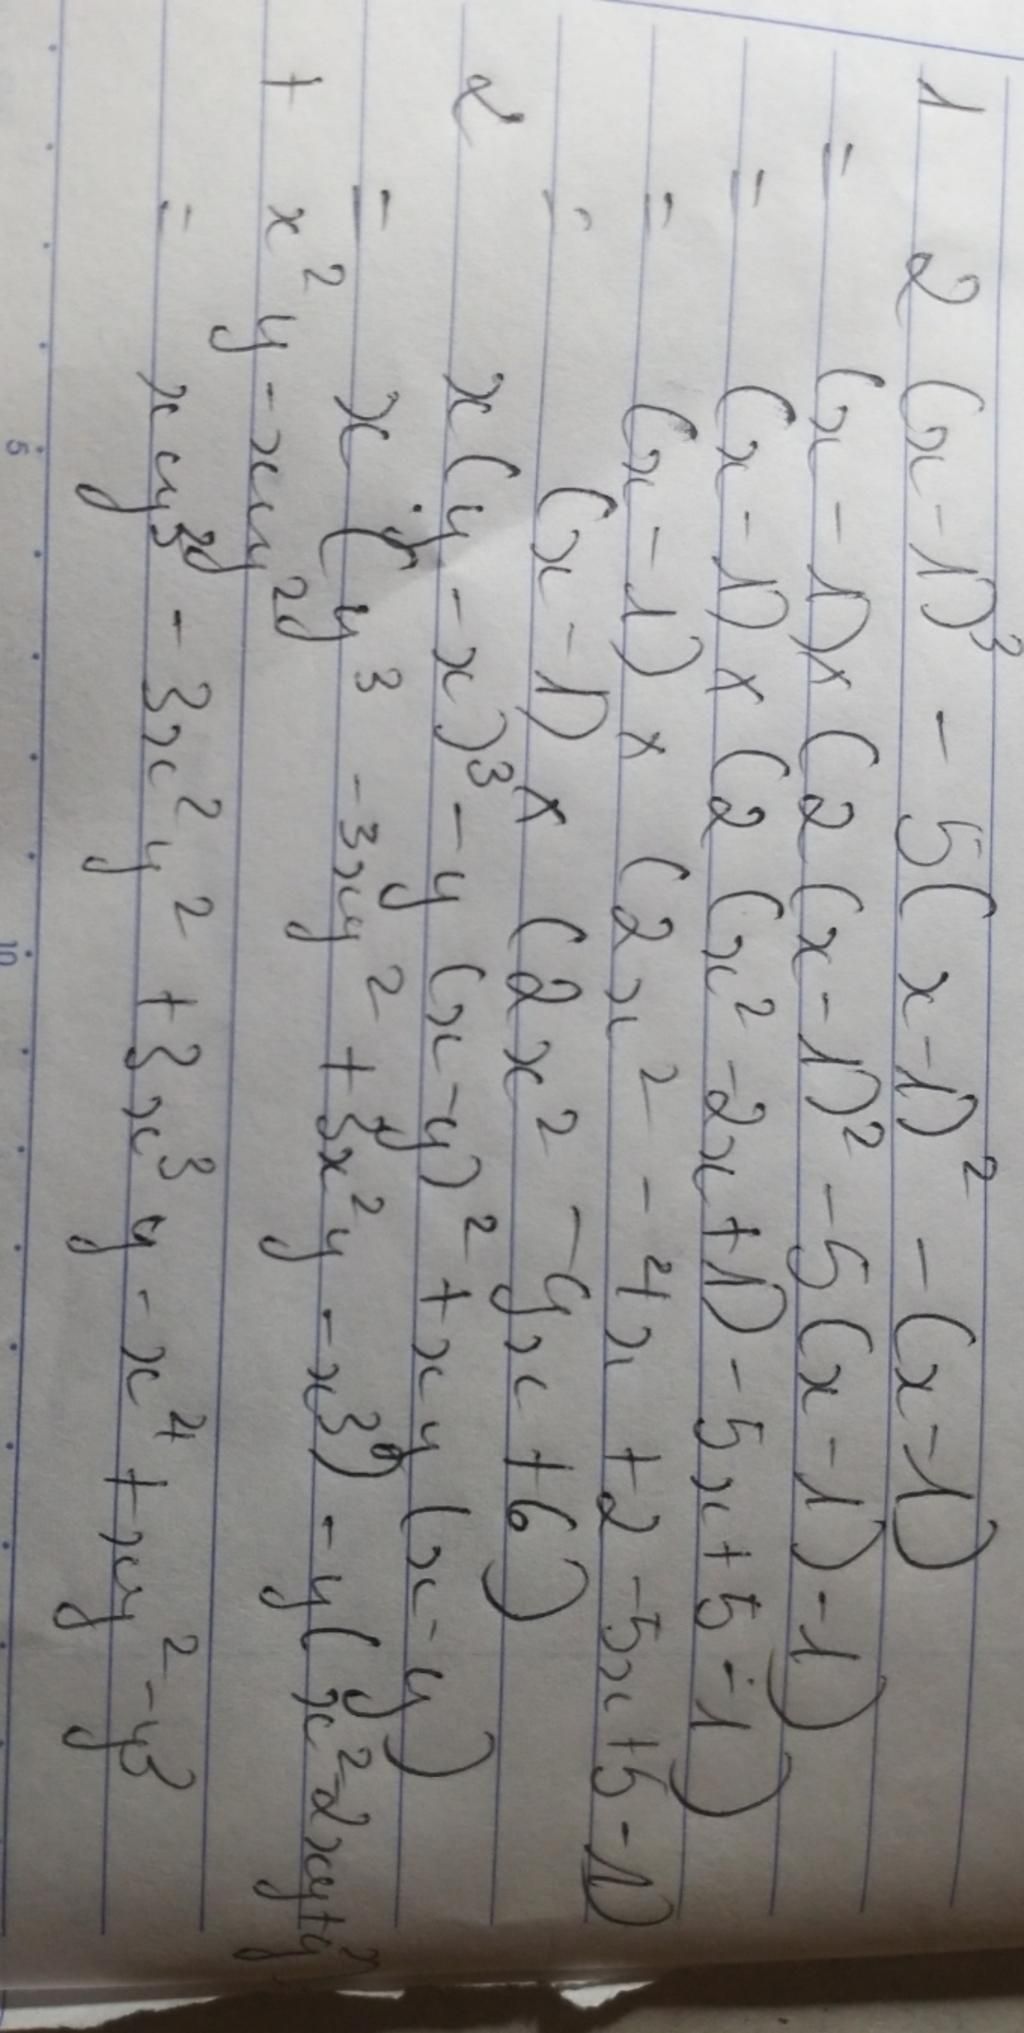 1 2(x-1)³ - 5(x-1)² - (x-1)
= (x-1)×(2(x-1)² - 5(x-1) - 1)
= (x-1)×(2(x²-2x+1) - 5x+5-1)
= (x-1)×(2x² - 4x + 2 - 5x + 5 - 1)
= (x-1)×(2x² - 9x + 6)
2 x(y-x)³ - y(x-y)² + xy(x-y)
= x(y³ - 3xy² + 3x²y - x³) - y(x²-2xy+y²)
+ x²y - xy²
= xy³ - 3x²y² + 3x³y - x⁴ + xy² - y³
5
10